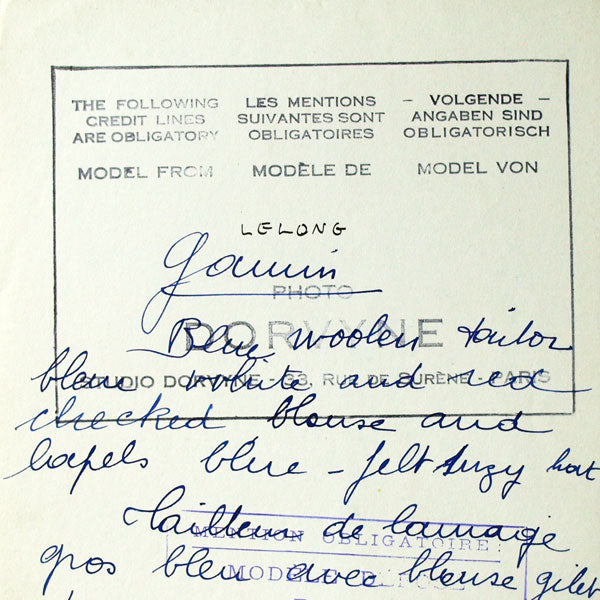 THE FOLLOWING CREDIT LINES ARE OBLIGATORY
LES MENTIONS SUIVANTES SONT OBLIGATOIRES
— VOLGENDE — ANGABEN SIND OBLIGATORISCH
MODEL FROM
MODÈLE DE
MODEL VON
LELONG
Gamin
PHOTO
DORVYNE
STUDIO DORVYNE - 33, RUE DE SURÈNE - PARIS
Blue woolen tailor
bleu white and red
checked blouse and
lapels blue - felt Suzy hat
Tailleur de lainage
MENTION OBLIGATOIRE:
gros bleu avec blouse gilet
MODÈLE DEPOSE